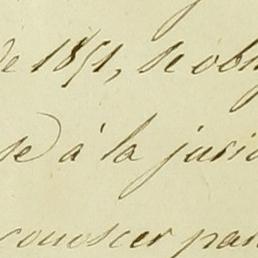 de 1851, se obli
se à la juris
conoscer para